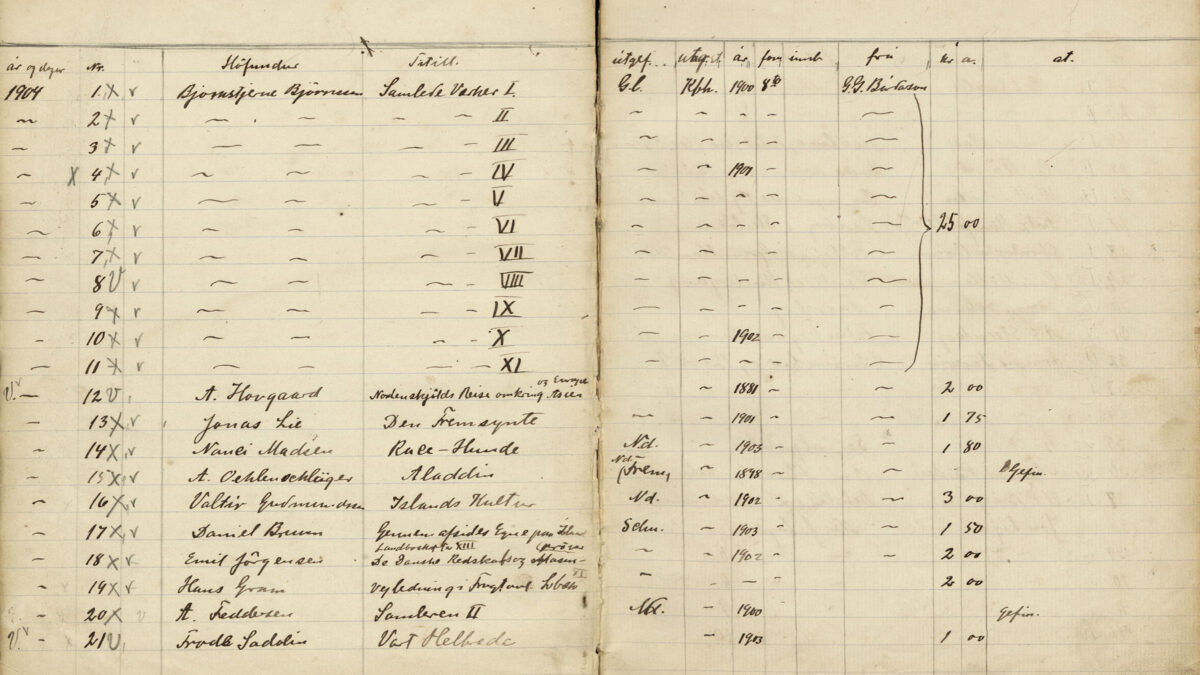 ár og dagur Nr. Höfundur Titill. útgef. útg.st. ár form innb frá kr a. at.
1904 1. X v Bjørnstjerne Bjørnsson Samlede Værker I. G.l. Kph. 1900 8vo G.G. Bárðarson
~ 2 X v ~ ~ ~ ~ II ~ ~ ~ ~ ~
~ 3 X v ~ ~ ~ ~ III ~ ~ ~ ~ ~
~ X 4 X v ~ ~ ~ ~ IV ~ ~ 1901 ~ ~
~ 5 X v ~ ~ ~ ~ V ~ ~ ~ ~ ~
~ 6 X v ~ ~ ~ ~ VI ~ ~ ~ ~ ~ 25 00
~ 7 X v ~ ~ ~ ~ VII ~ ~ ~ ~ ~
~ 8 V v ~ ~ ~ ~ VIII ~ ~ ~ ~ ~
~ 9 X v ~ ~ ~ ~ IX ~ ~ ~ ~ ~
~ 10 X v ~ ~ ~ ~ X ~ ~ 1902 ~ ~
~ 11 X v ~ ~ ~ ~ XI ~ ~ ~ ~ ~
V. v ~ 12 V. A. Hovgaard Nordenskjölds Reise omkring Asien og Europa ~ 1881 ~ ~ 2 00
~ 13 X v Jonas Lie Den Fremsynte ~ ~ 1901 ~ ~ 1 75
~ 14 X v Nanci Madsen Race-Hunde Nd. ~ 1903 ~ ~ 1 80
~ 15 X v A. Oehlenschläger Aladdin Nd. (Frem) ~ 1898 ~ Gefin.
~ 16 X v Valtir Guðmundsson Islands Kultur Nd. ~ 1902 ~ ~ 3 00
~ 17 X v Daniel Bruun Gennem afsides Egne paa Schu. ~ 1903 ~ ~ 1 50
~ 18 X v Emil Jörgensen De Danske Redskabs og ~ ~ 1902 ~ ~ 2 00
~ 19 X v Hans Gram Vejledning i XI ~ ~ ~ 2 00
~ 20 X v A. Feddersen Samleren II ~ 1900 Gefin.
V. v ~ 21 V. Frode Sadolin Vort Helbrede ~ 1903 ~ 1 00